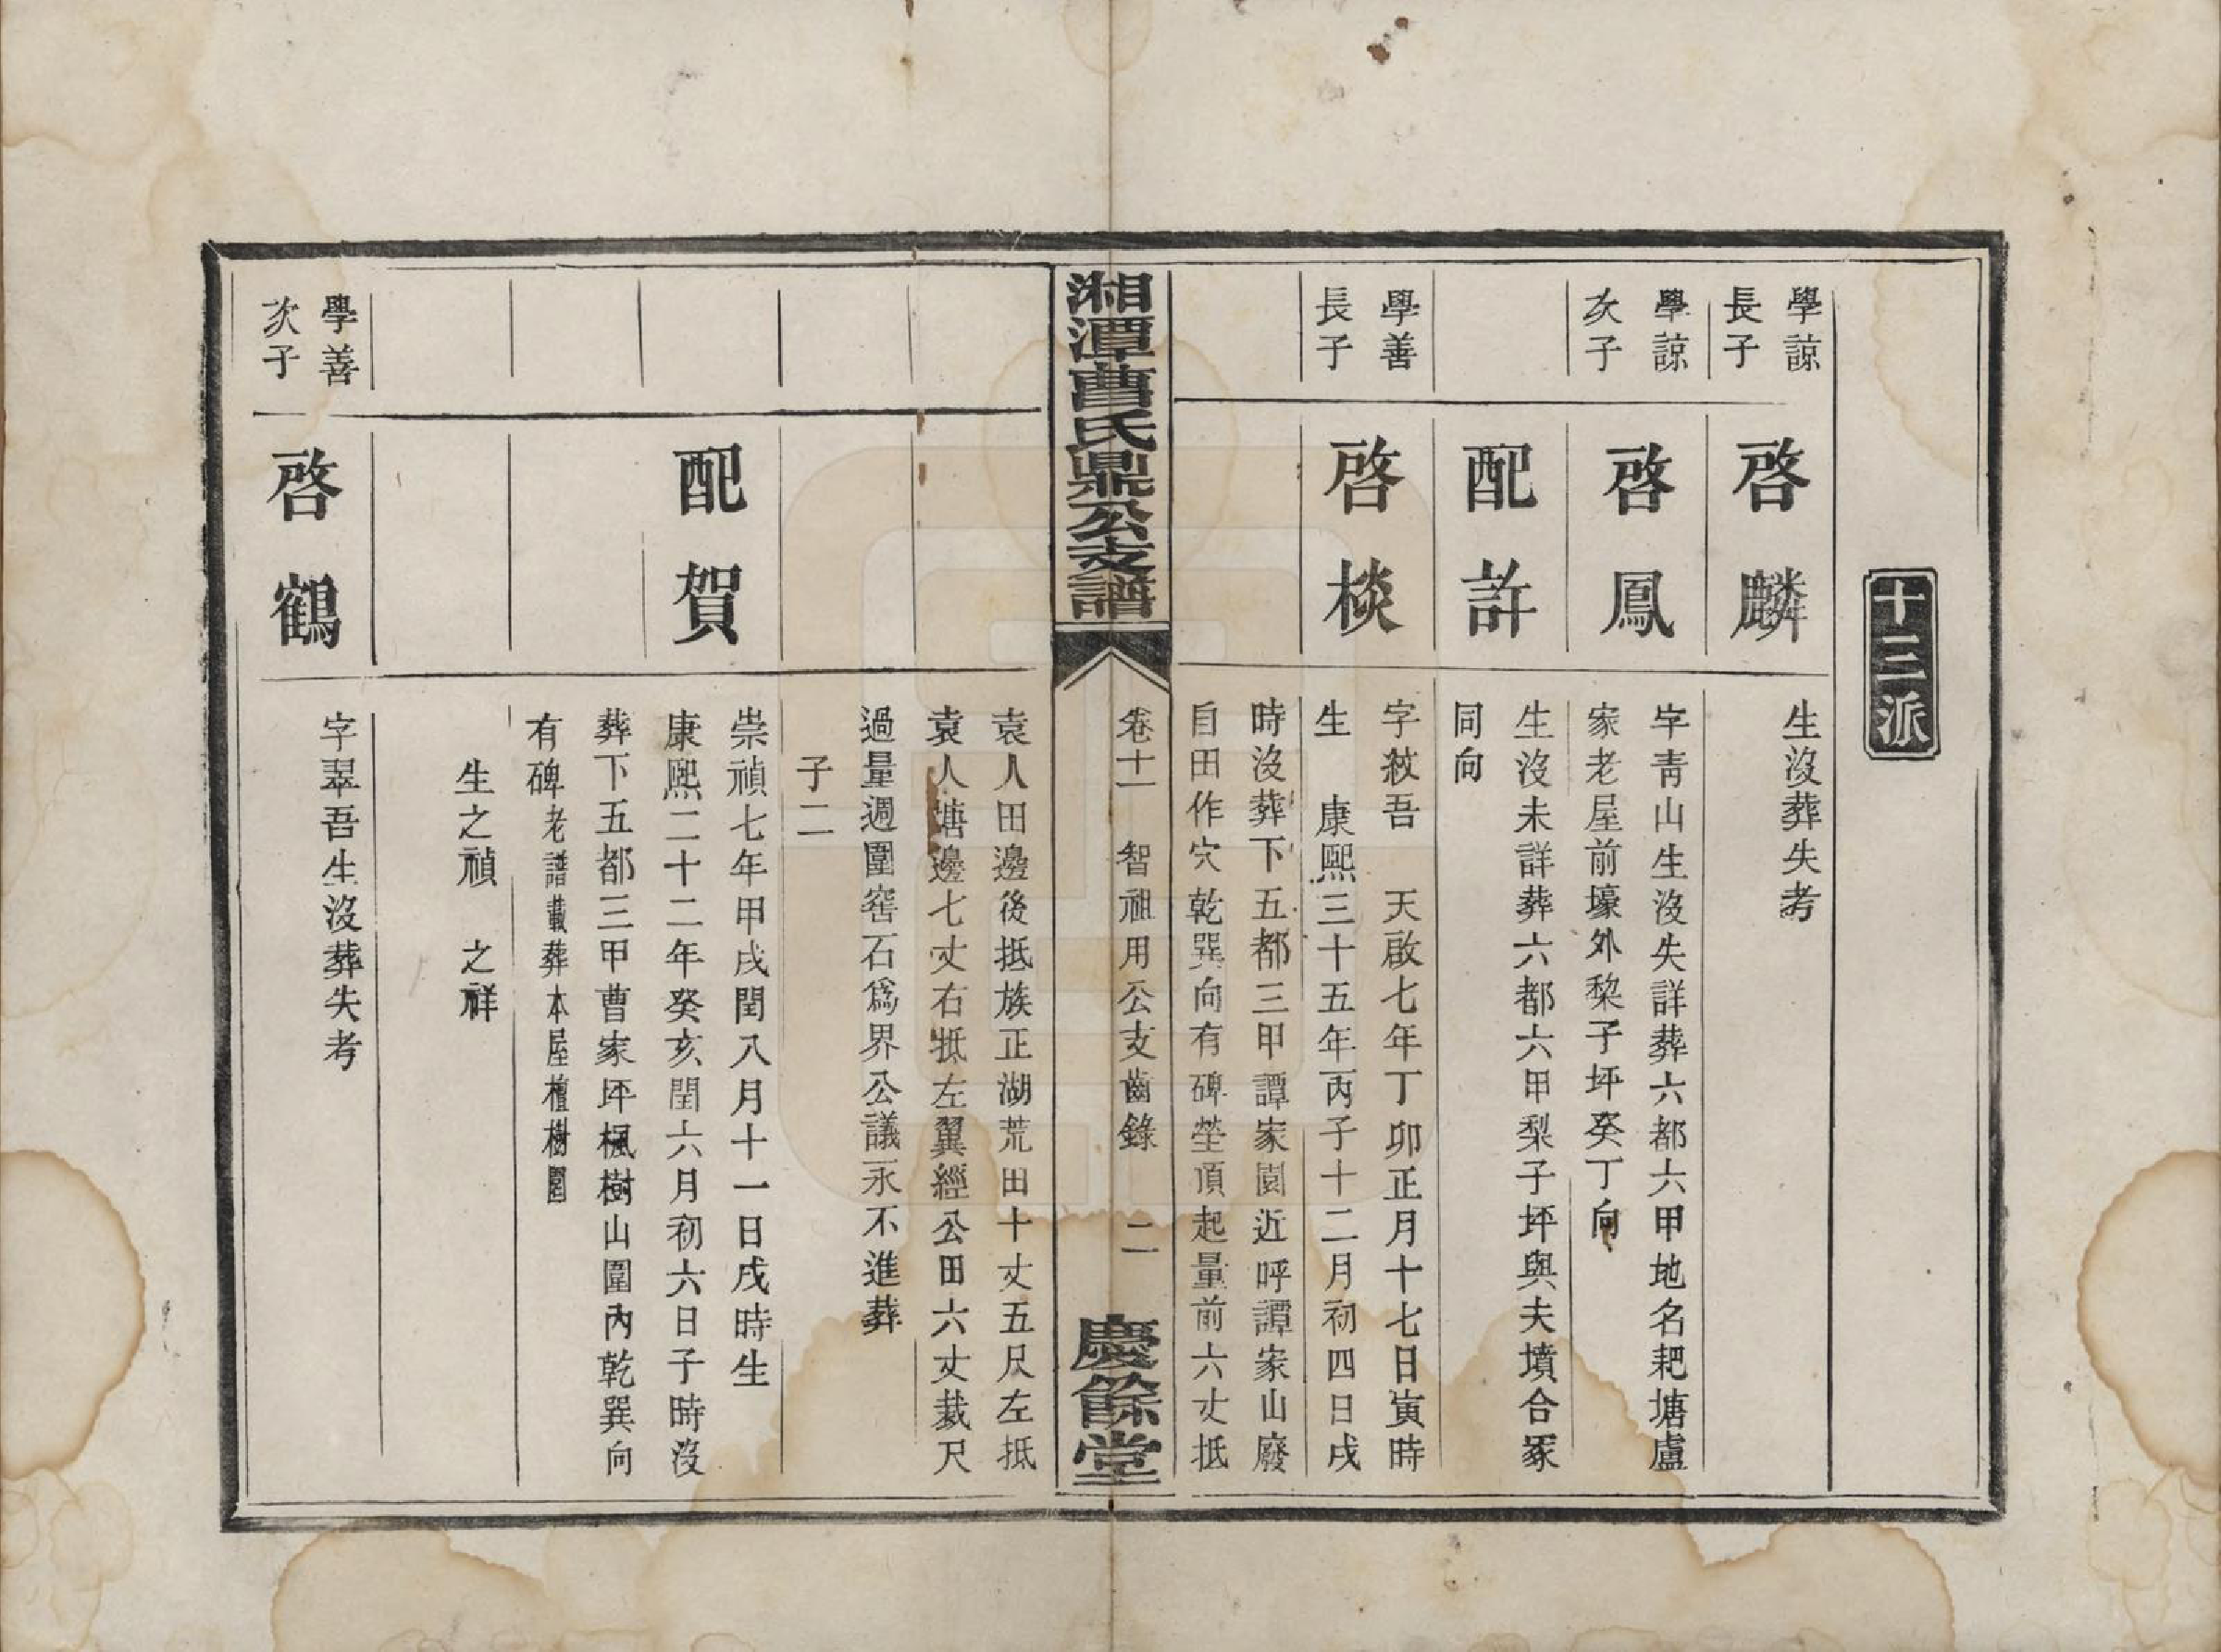 十三派
學諒
長子
啓麟
生沒葬失考
學諒
次子
啓鳳
字靑山生沒失詳葬六都六甲地名耙塘盧
家老屋前壕外黎子坪癸丁向
配許
生沒未詳葬六都六甲梨子坪與夫墳合冢
同向
學善
長子
啓棪
字敍吾　天啟七年丁卯正月十七日寅時
生　康熙三十五年丙子十二月初四日戌
時沒葬下五都三甲譚家園近呼譚家山廢
自田作穴乾巽向有碑塋頂起量前六丈抵
湘潭曹氏鼎公支譜
卷十一　智祖用公支齒錄　二
慶餘堂
袁人田邊後抵族正湖荒田十丈五尺左抵
袁人塘邊七丈右抵左翼經公田六丈裁尺
過量週圍窰石爲界公議永不進葬
子二
配賀
崇禎七年甲戌閏八月十一日戌時生
康熙二十二年癸亥閏六月初六日子時沒
葬下五都三甲曹家坪楓樹山圍內乾巽向
有碑老譜載葬本屋檀樹園
生之禎　之祥
學善
次子
啓鶴
字翠吾生沒葬失考